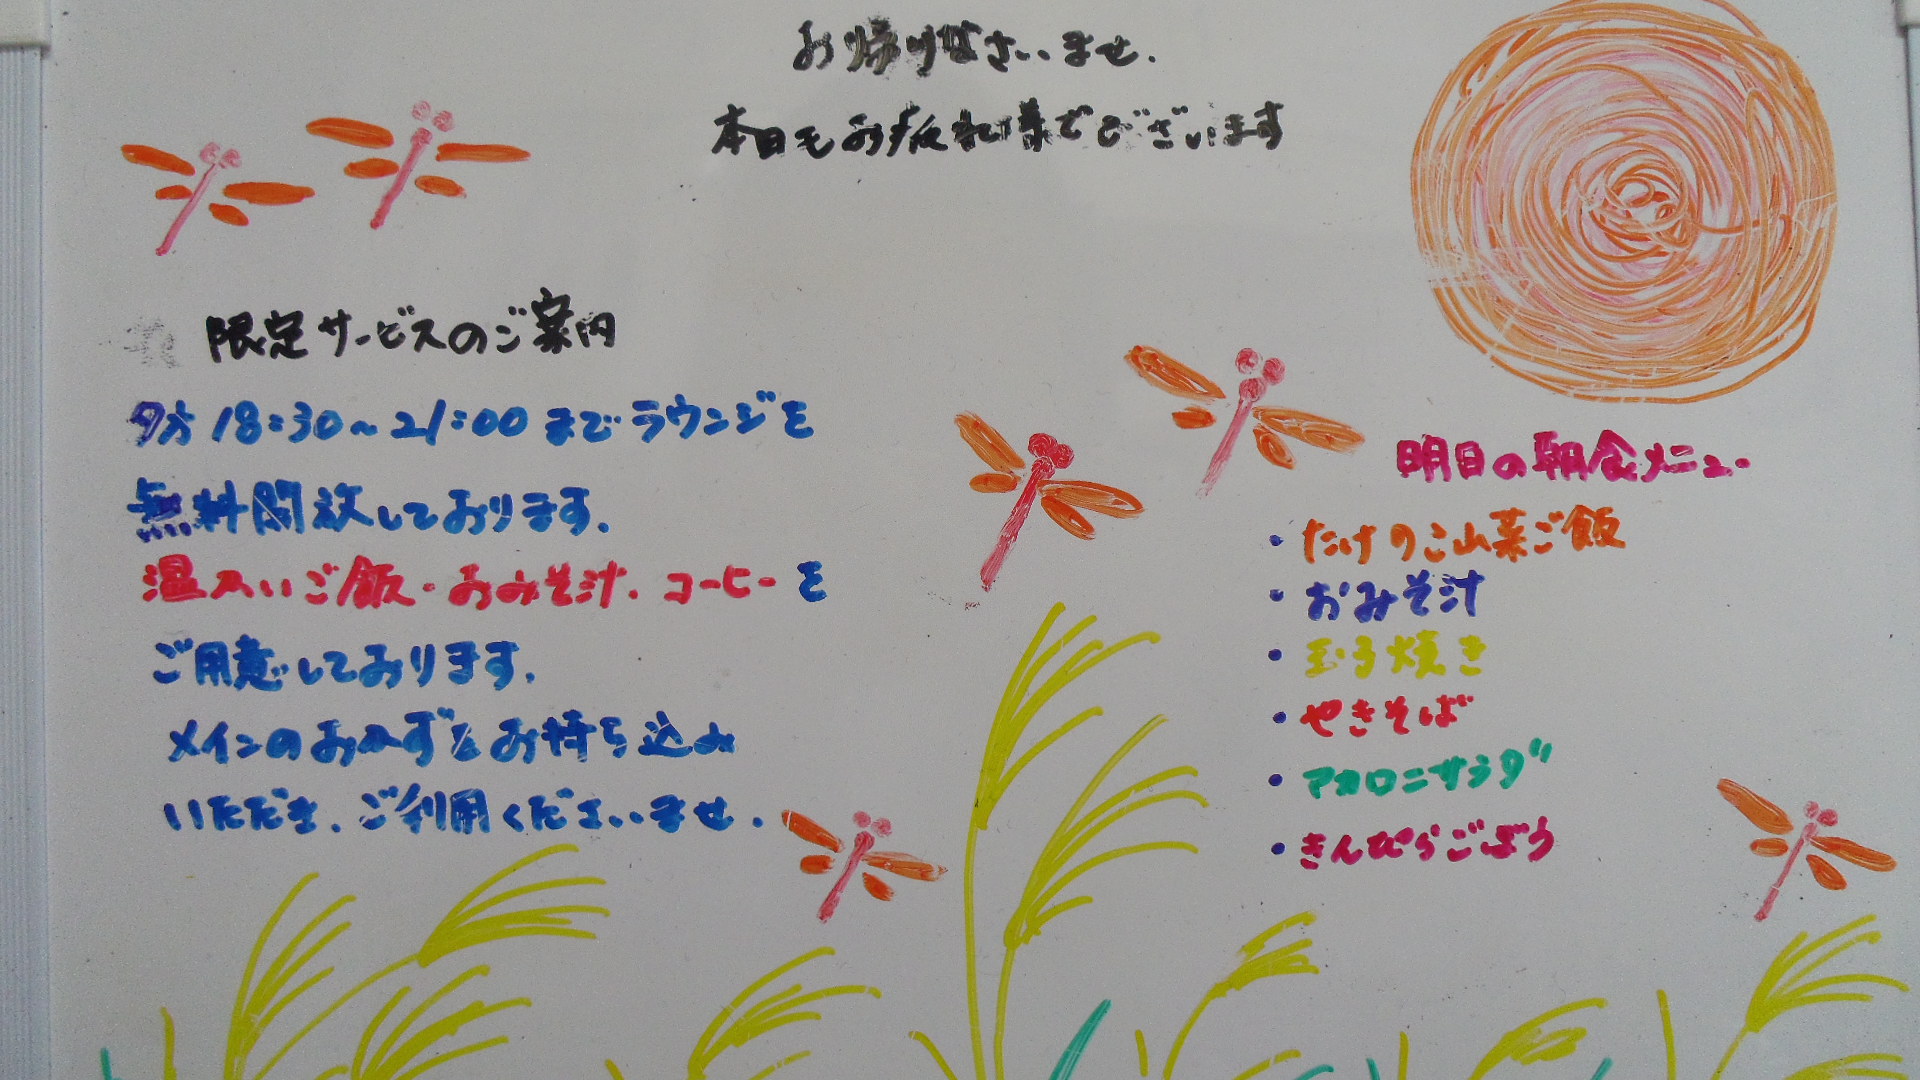 お帰りなさいませ.
本日もお疲れ様でございます
限定サービスのご案内
夕方18:30~21:00までラウンジを
無料開放しております.
温かいご飯・おみそ汁.コーヒーを
ご用意しております.
メインのおかずをお持ち込み
いただき.ご利用くださいませ.
明日の朝食メニュー
・たけのこ山菜ご飯
・おみそ汁
・玉子焼き
・やきそば
・マカロニサラダ
・きんぴらごぼう